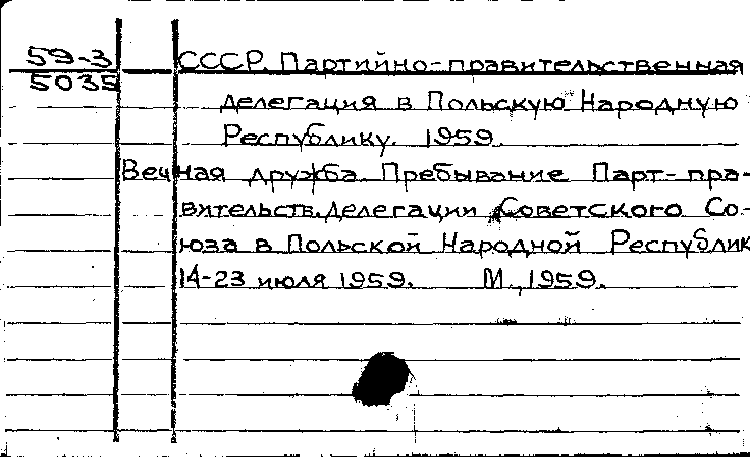 59-3 СССР. Партийно-правительственная
5035
делегация в Польскую Народную
Республику. 1959.
Вечная дружба. Пребывание Парт-пра-
вительств. делегации Советского Со-
юза в Польской Народной Республик
14-23 июля 1959. М., 1959.